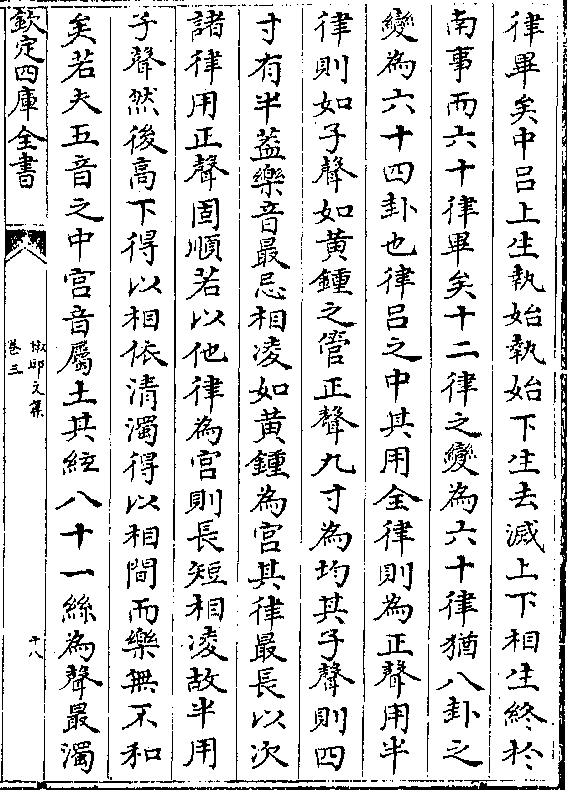 律畢矣中呂上生執始執始下生去滅上下相生終於
南事而六十律畢矣十二律之變為六十律猶八卦之
變為六十四卦也律呂之中其用全律則為正聲用半
律則如子聲如黃鍾之管正聲九寸為均其子聲則四
寸有半葢樂音最忌相凌如黃鍾為宮其律最長以次
諸律用正聲固順若以他律為宮則長短相凌故半用
子聲然後高下得以相依清濁得以相間而樂無不和
矣若夫五音之中宮音屬土其絃八十一絲為聲最濁
欽定四庫全書
椒邱文集
卷三
十八